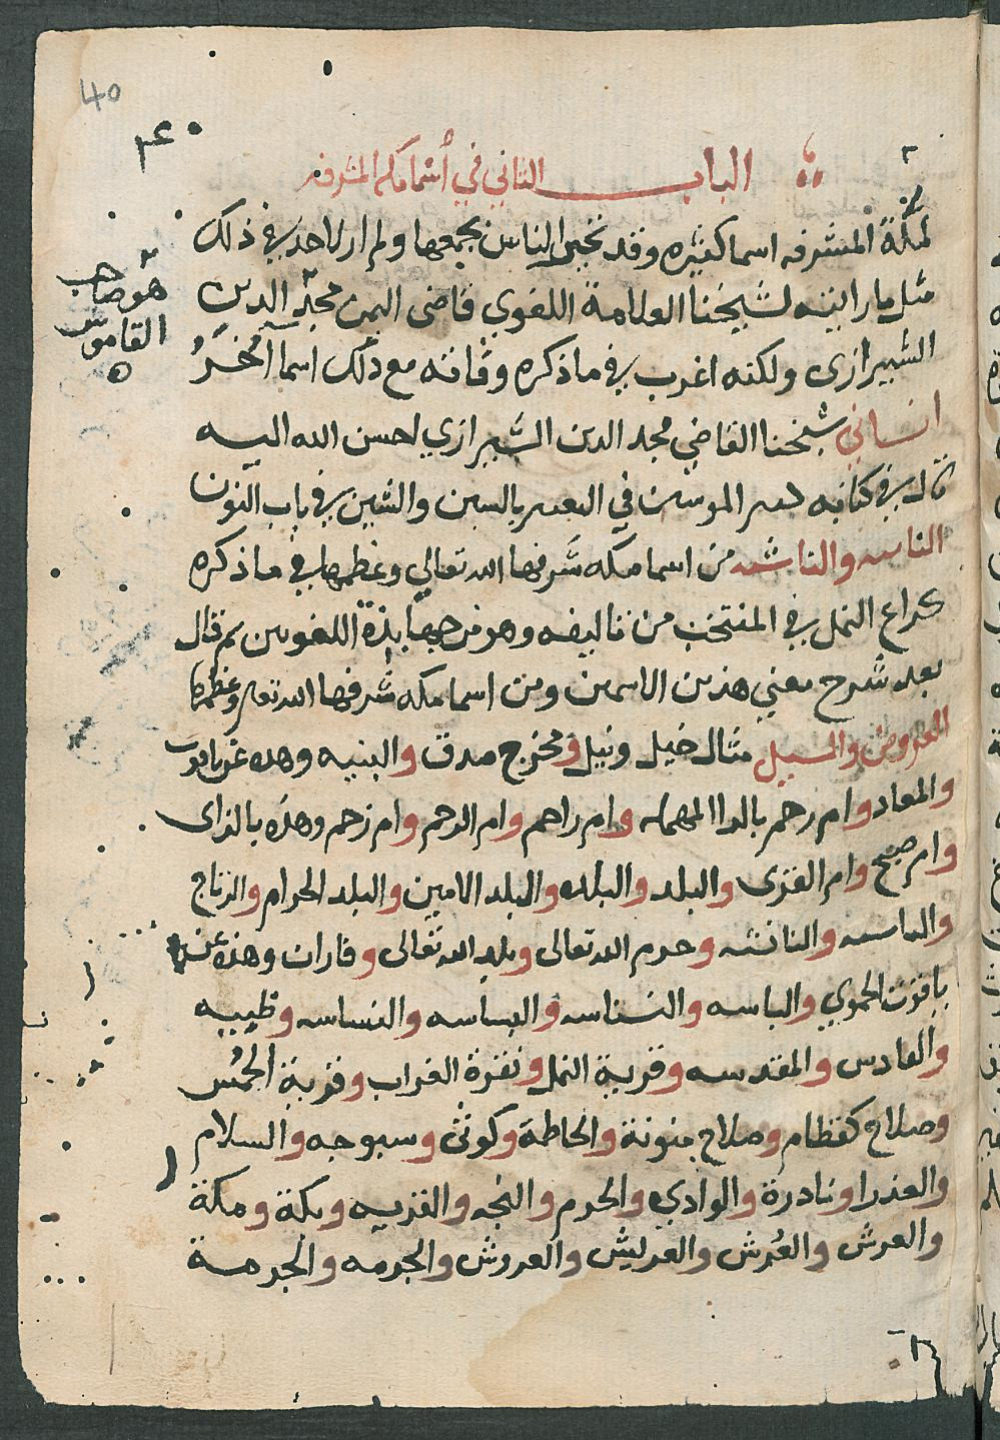 40
٤٠
الباب الثاني في أسما مكه المشرفه
لمكة المشرفه اسما كثيره وقد تخير الناس بجمعها ولم ار لاحد في ذلك
مثل ما راايته لشيخنا العلامة اللغوي قاضي اليمن مجد الدين
هو صاحب
القاموس
الشيرازي ولكنه اغرب في ما ذكره وفاته مع ذلك اسما أُخَرُ
شيخنا القاضي مجد الدين الشيرازي احسن الله اليه
قال في كتابه الموسين في التعبير بالسين والشين في باب النون
الناسه والناشه من اسما مكه شرفها الله تعالي وعظمها في ما ذكره
كراع النمل في المنتخب من تاليفه وهو من اللغويين ثم قال
بعد شرح معني هذين الاسمين ومن اسما مكه شرفها الله تعالي وعظمها
العروض والسيل مثال خيل ونيل ومخرج صدق والبنيه وهذه عن ياقوت
والمعاد وام رحم بالرا المهمله وام راحم وام الرحم وام زحم وهذه بالزاى
وام صبح وام القرى والبلد والبلده والبلد الامين والبلد الحرام والرتاج
والناسه والناشه وحرم الله تعالى وبلد الله تعالى وفاران وهذه عن
ياقوت الحموي والباسه والنسناسه والبساسه والنساسه وطيبه
والقادس والمقدسه وقرية النمل ونقرة الغراب وقرية الحُمس
وصلاح كقطام وصلاح منونة والحاطمة وكوثى وسبوحه والسلام
والعذرا ونادرة والوادي والحرم والنجر والقريه وبكة ومكة
والعرش والعُرش والعريش والعروش والحرمه والحرمة